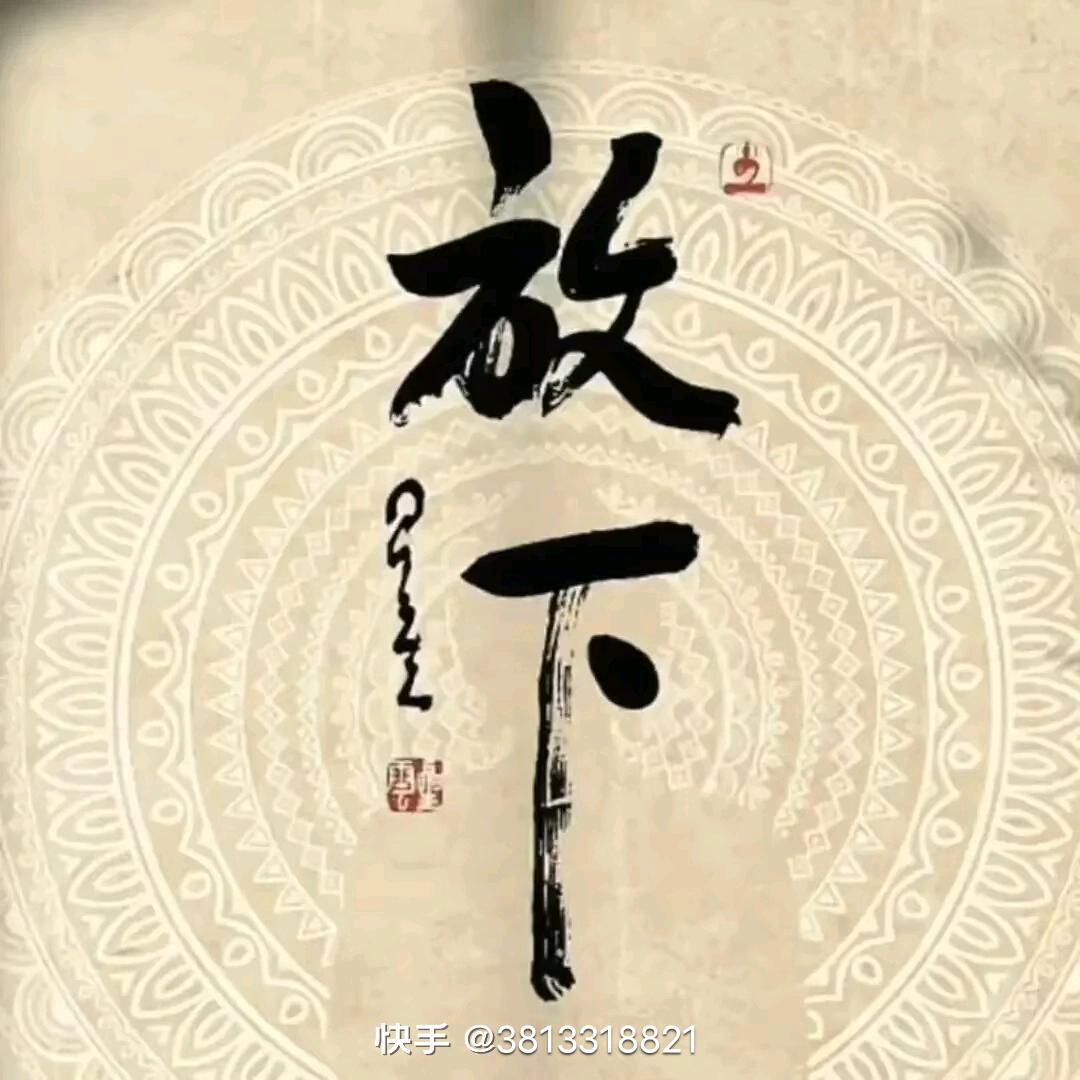 放下
星云
快手 @3813318821